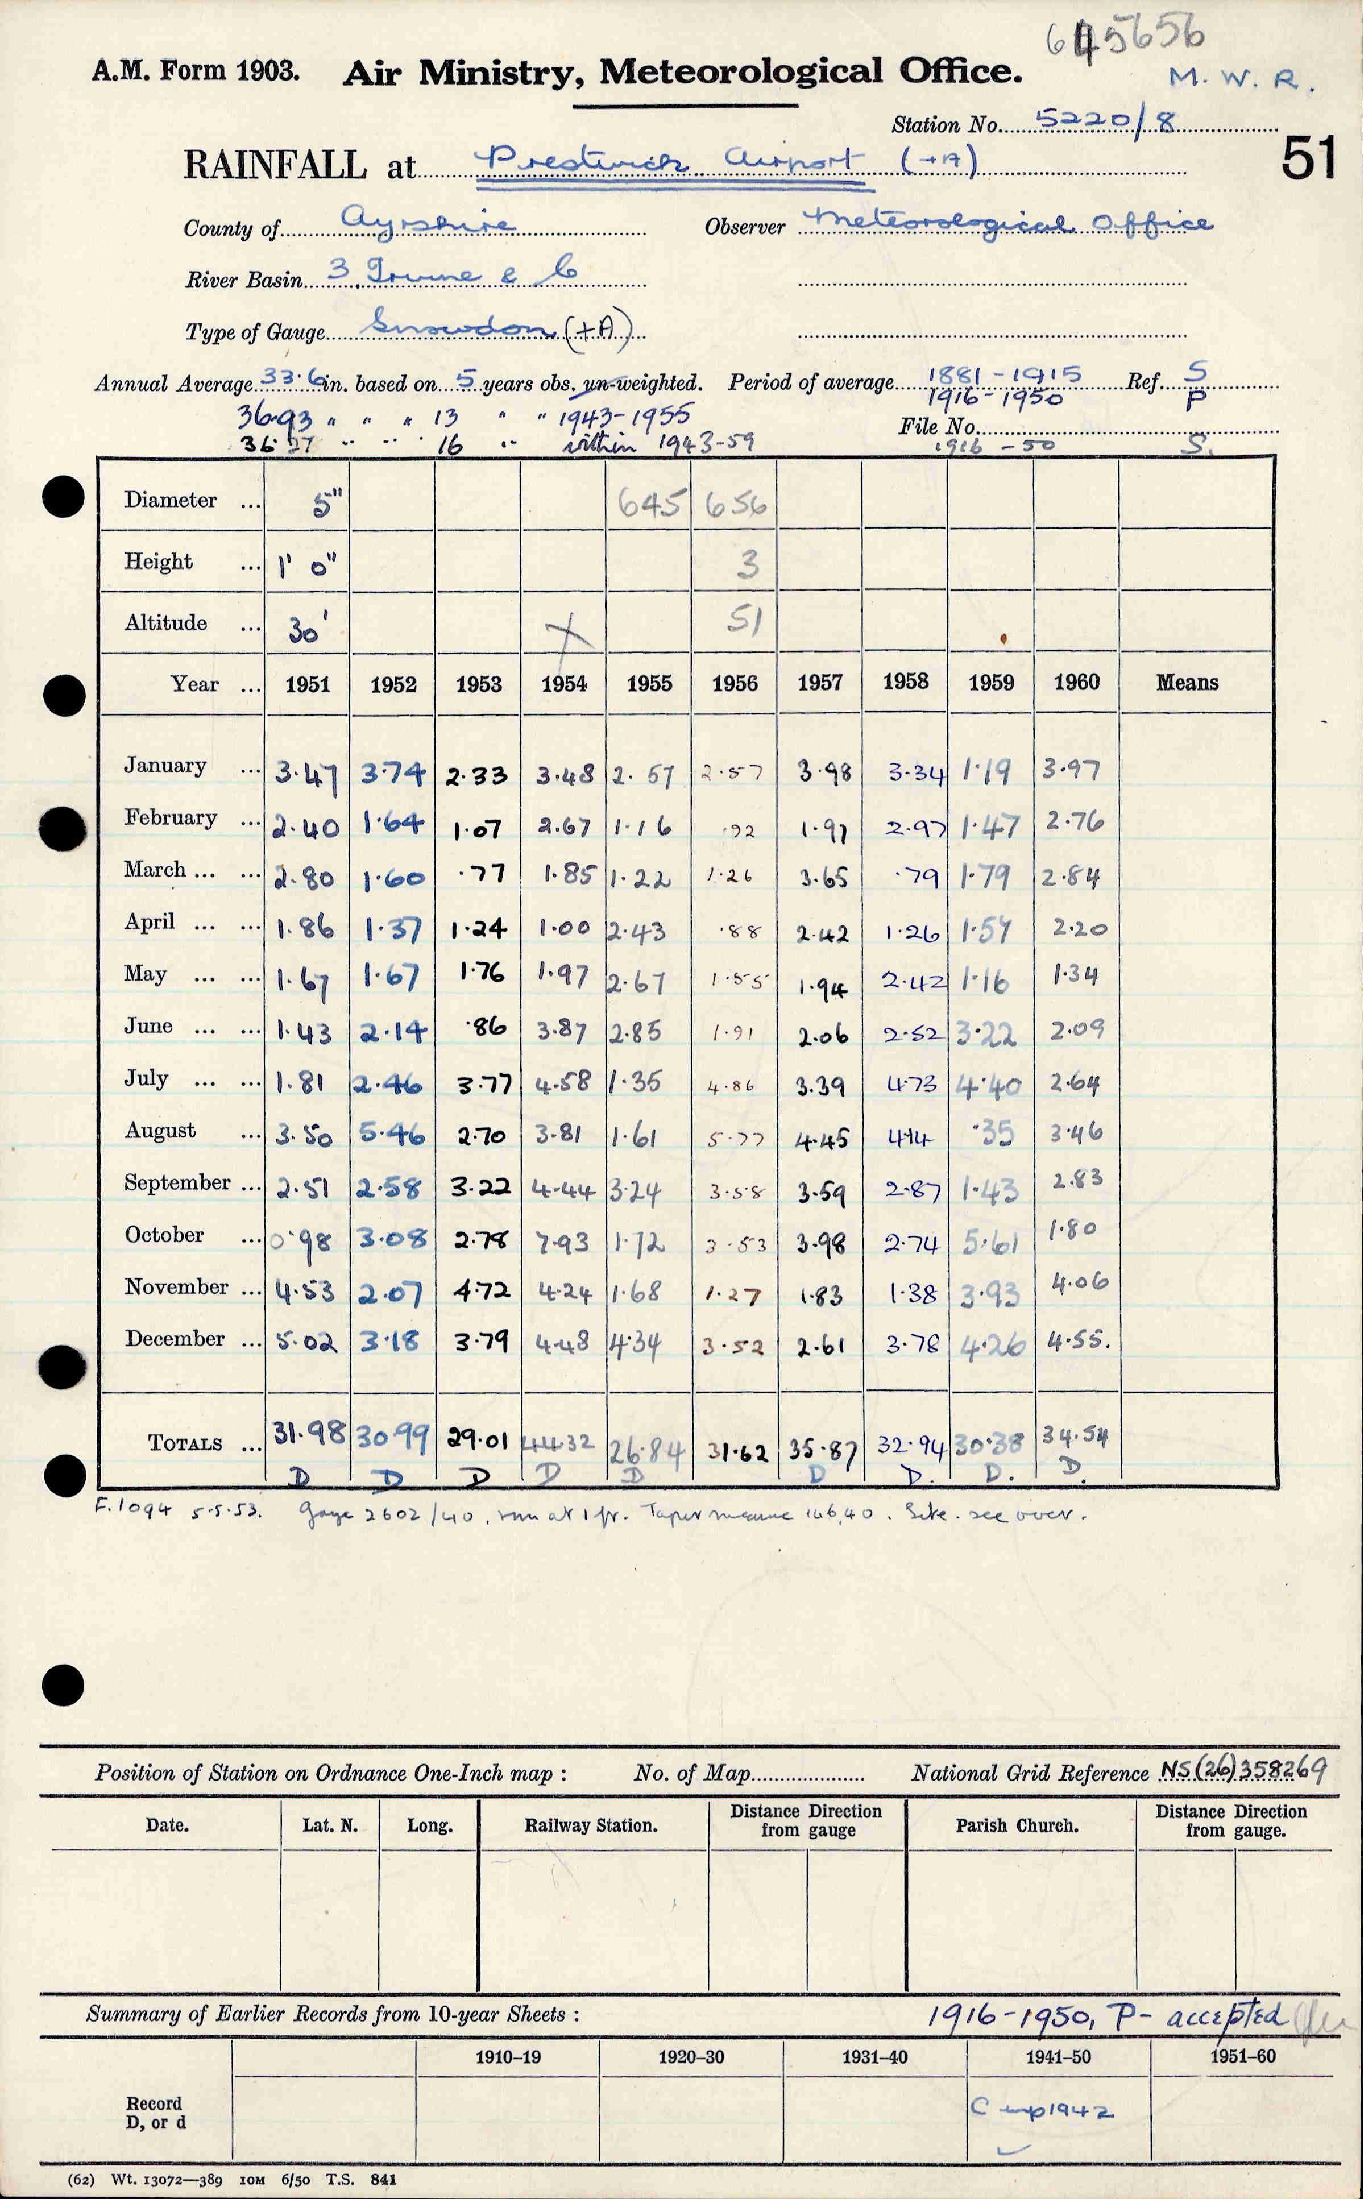 645656
A.M. Form 1903. Air Ministry, Meteorological Office. M. W. R.
Station No. 5220/8
RAINFALL at Prestwick Airport (+A) 51
County of Ayrshire Observer Meteorological Office
River Basin 3. Irvine & C
Type of Gauge Snowdon (+A)
Annual Average 33.6 in. based on 5 years obs. un-weighted. Period of average 1881-1915 Ref. S
1916-1950 P
36.93 " " " 13 " " 1943-1955 File No.
36.27 " " " 16 " within 1943-59 1916-50 S.
Diameter ... 5" 645 656
Height ... 1' 0" 3
Altitude ... 30' X 51
Year ... 1951 1952 1953 1954 1955 1956 1957 1958 1959 1960 Means
January ... 3.47 3.74 2.33 3.48 2.57 2.57 3.98 3.34 1.19 3.97
February ... 2.40 1.64 1.07 2.67 1.16 .92 1.97 2.97 1.47 2.76
March ... ... 2.80 1.60 .77 1.85 1.22 1.26 3.65 .79 1.79 2.84
April ... ... 1.86 1.37 1.24 1.00 2.43 .88 2.42 1.26 1.57 2.20
May ... ... 1.67 1.67 1.76 1.97 2.67 1.55 1.94 2.42 1.16 1.34
June ... ... 1.43 2.14 .86 3.87 2.85 1.91 2.06 2.52 3.22 2.09
July ... ... 1.81 2.46 3.77 4.58 1.35 4.86 3.39 4.73 4.40 2.64
August ... 3.50 5.46 2.70 3.81 1.61 5.77 4.45 4.14 .35 3.46
September ... 2.51 2.58 3.22 4.44 3.24 3.58 3.59 2.87 1.43 2.83
October ... 0.98 3.08 2.78 7.93 1.72 3.53 3.98 2.74 5.61 1.80
November ... 4.53 2.07 4.72 4.24 1.68 1.27 1.83 1.38 3.93 4.06
December ... 5.02 3.18 3.79 4.48 4.34 3.52 2.61 3.78 4.26 4.55.
TOTALS ... 31.98 30.99 29.01 44.32 26.84 31.62 35.87 32.94 30.38 34.54
D D D D D D D. D. D.
F.1094 5.5.53. Gauge 2602/40, rim at 1 ft. Taper measure 14640. Site. see over.
Position of Station on Ordnance One-Inch map : No. of Map National Grid Reference NS(26)358269
Date. Lat. N. Long. Railway Station. Distance Direction from gauge Parish Church. Distance Direction from gauge.
Summary of Earlier Records from 10-year Sheets : 1916-1950, P- accepted
1910–19 1920–30 1931–40 1941–50 1951–60
Record D, or d C 1942
(62) Wt. 13072—389 10M 6/50 T.S. 841